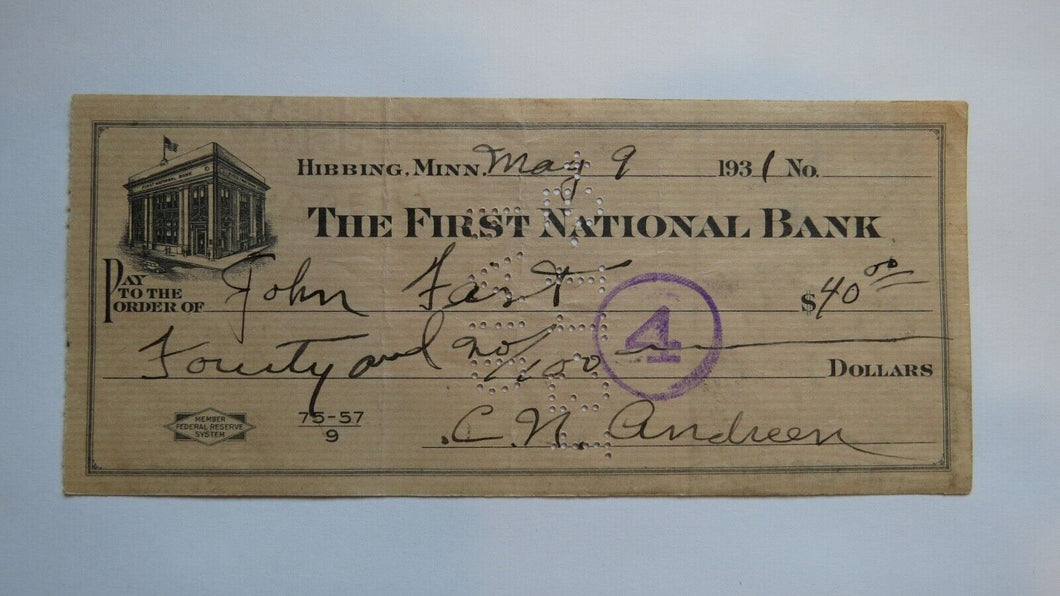 HIBBING, MINN. May 9 1931 No.
FIRST NATIONAL BANK
THE FIRST NATIONAL BANK
PAY TO THE ORDER OF John Fast $40 00
Fourty and no/100 DOLLARS
4
MEMBER
FEDERAL RESERVE
SYSTEM
75-57
9
C. N. Andreen